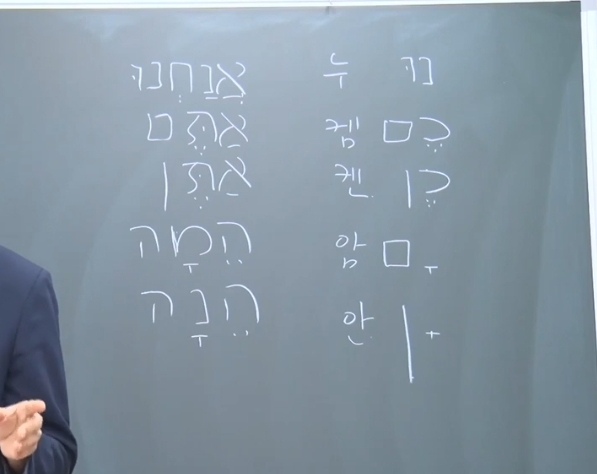 אֲנַחְנוּ 누 נוּ
אַתֶּם 켐 כֶם
אַתֶּן 켄 כֶן
הֵמָה 암 ָם
הֵנָה 안 ָן